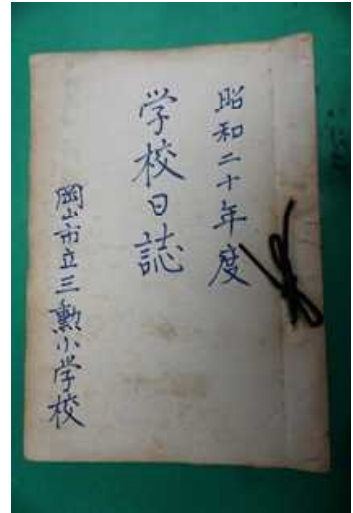 昭和二十年度
学校日誌
岡山市立三勲小学校